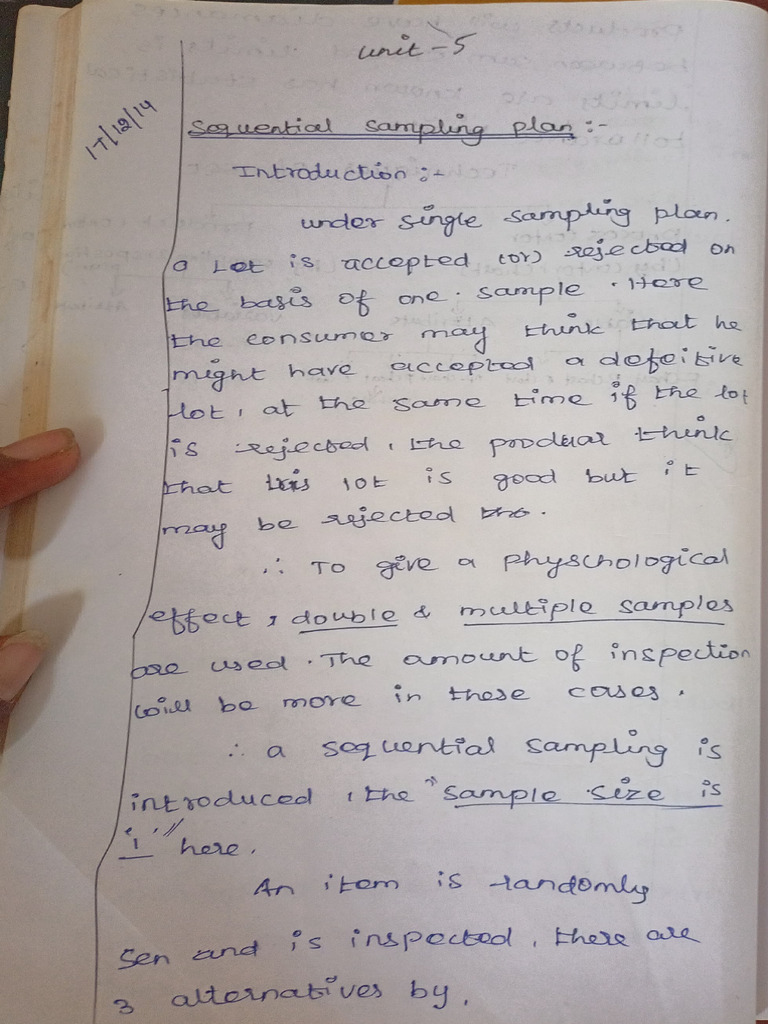 unit - 5
17/12/14
Sequential sampling plan :-
Introduction :-
under single sampling plan.
a Lot is accepted (or) rejected on
the basis of one sample. Here
the consumer may think that he
might have accepted a defeitive
lot, at the same time if the lot
is rejected, the produar think
that this lot is good but it
may be rejected tho.
∴ To give a physchological
effect, double & multiple samples
are used. The amount of inspection
will be more in these cases.
∴ a sequential sampling is
introduced, the "sample size is
'1'" here.
An item is randomly
sen and is inspected, there are
3 alternatives by,